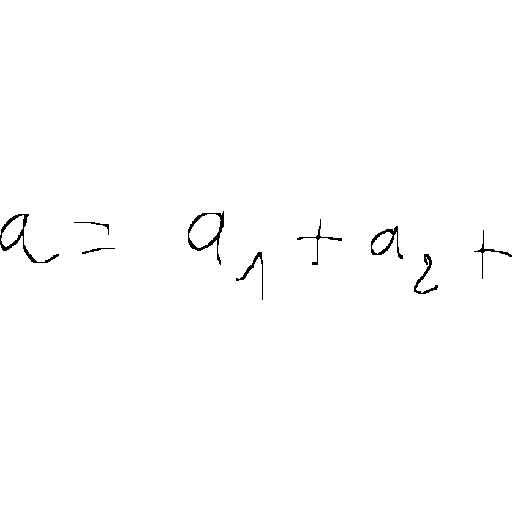 a = a₁ + a₂ +